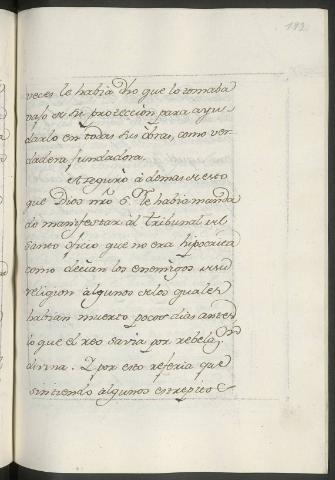 192
veces le habia dho que lo tomaba
vajo de su proteccion para ayu
darlo en todas sus obras, como ver
dadera fundadora.
Aseguró á demas de esto
que Dios nro S.r le habia manda
do manifestar al tribunal del
santo oficio que no era hipocrita
como decian los enemigos de su
religion algunos de los quales
habian muerto pocos dias antes
lo que el reo savia por rebelaon
divina. Y por esto referia que
sintiendo algunos estrepitos